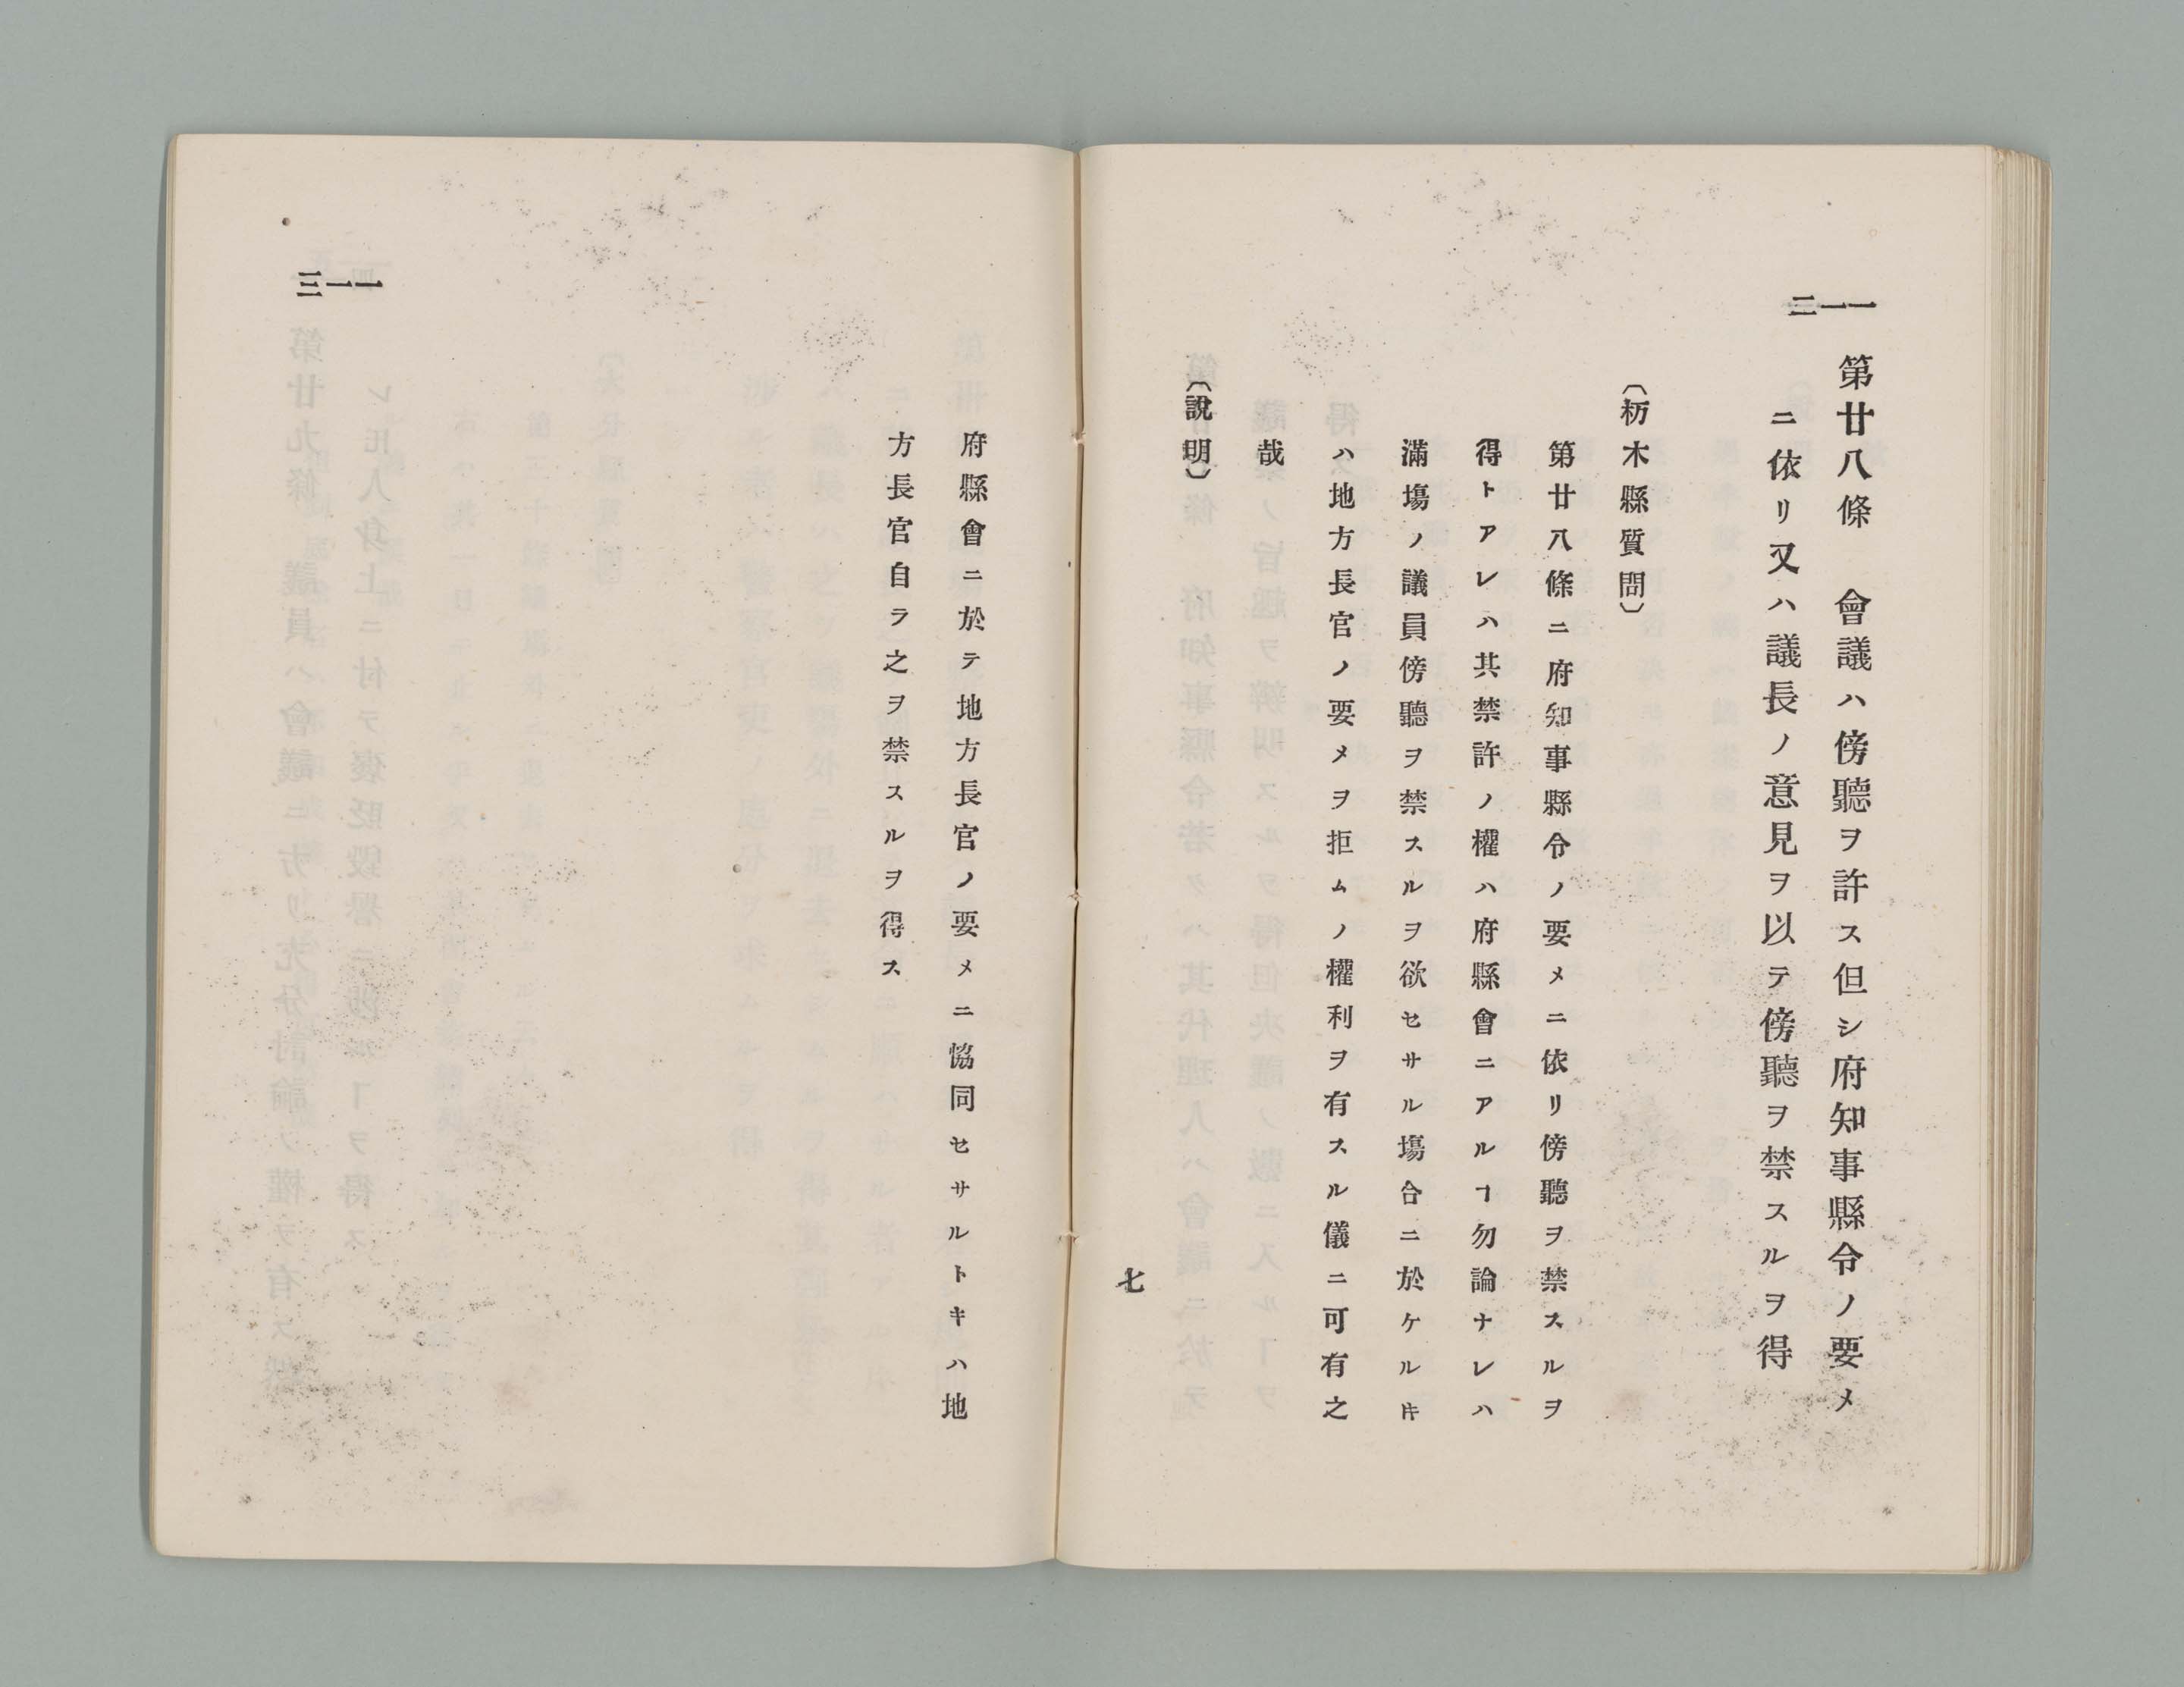 一一二
第廿八條　會議ハ傍聽ヲ許ス但シ府知事縣令ノ要メ
ニ依リ又ハ議長ノ意見ヲ以テ傍聽ヲ禁スルヲ得
〔栃木縣質問〕
第廿八條ニ府知事縣令ノ要メニ依リ傍聽ヲ禁スルヲ
得トアレハ其禁許ノ權ハ府縣會ニアルヿ勿論ナレハ
滿塲ノ議員傍聽ヲ禁スルヲ欲セサル塲合ニ於ケルキ
ハ地方長官ノ要メヲ拒ムノ權利ヲ有スル儀ニ可有之
哉
〔說明〕
七
一一三
府縣會ニ於テ地方長官ノ要メニ恊同セサルトキハ地
方長官自ラ之ヲ禁スルヲ得ス